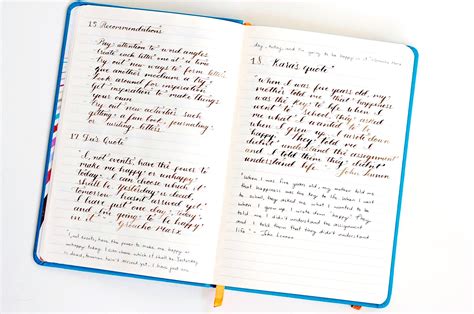 15 Recommendations
"Pay attention to word angles
Create each letter one at a time
Try out new ways to form letters
Give another medium a try
Look around for inspiration
Get inspiration to make things
your own
Try out new activities such
getting a fun book, journaling,
or writing letters.
17 Iris Quote
"I, not events, have the power to
make me happy or unhappy
today. I can choose which it
shall be. Yesterday is dead,
tomorrow hasn't arrived yet.
I have just one day, today,
and I'm going to be happy
in it." Groucho Marx
I, not events, have the power to make me happy or
unhappy today. I can choose which it shall be. Yesterday
is dead, tomorrow hasn't arrived yet. I have just one
day, today, and I'm going to be happy in it
18. Kara's quote"
"When I was five years old, my
mother told me that happiness
was the key to life. When I
went to school, they asked
me what I wanted to be
when I grew up. I wrote down
happy. They told me I
didn't understand the assignment
and I told them they didn't
understand life." John Lennon
"When I was five years old, my mother told me
that happiness was the key to life. When I went
to school, they asked me what I wanted to be
when I grew up. I wrote down "happy". They
told me I didn't understand the assignment
and I told them that they didn't understand
life" - John Lennon